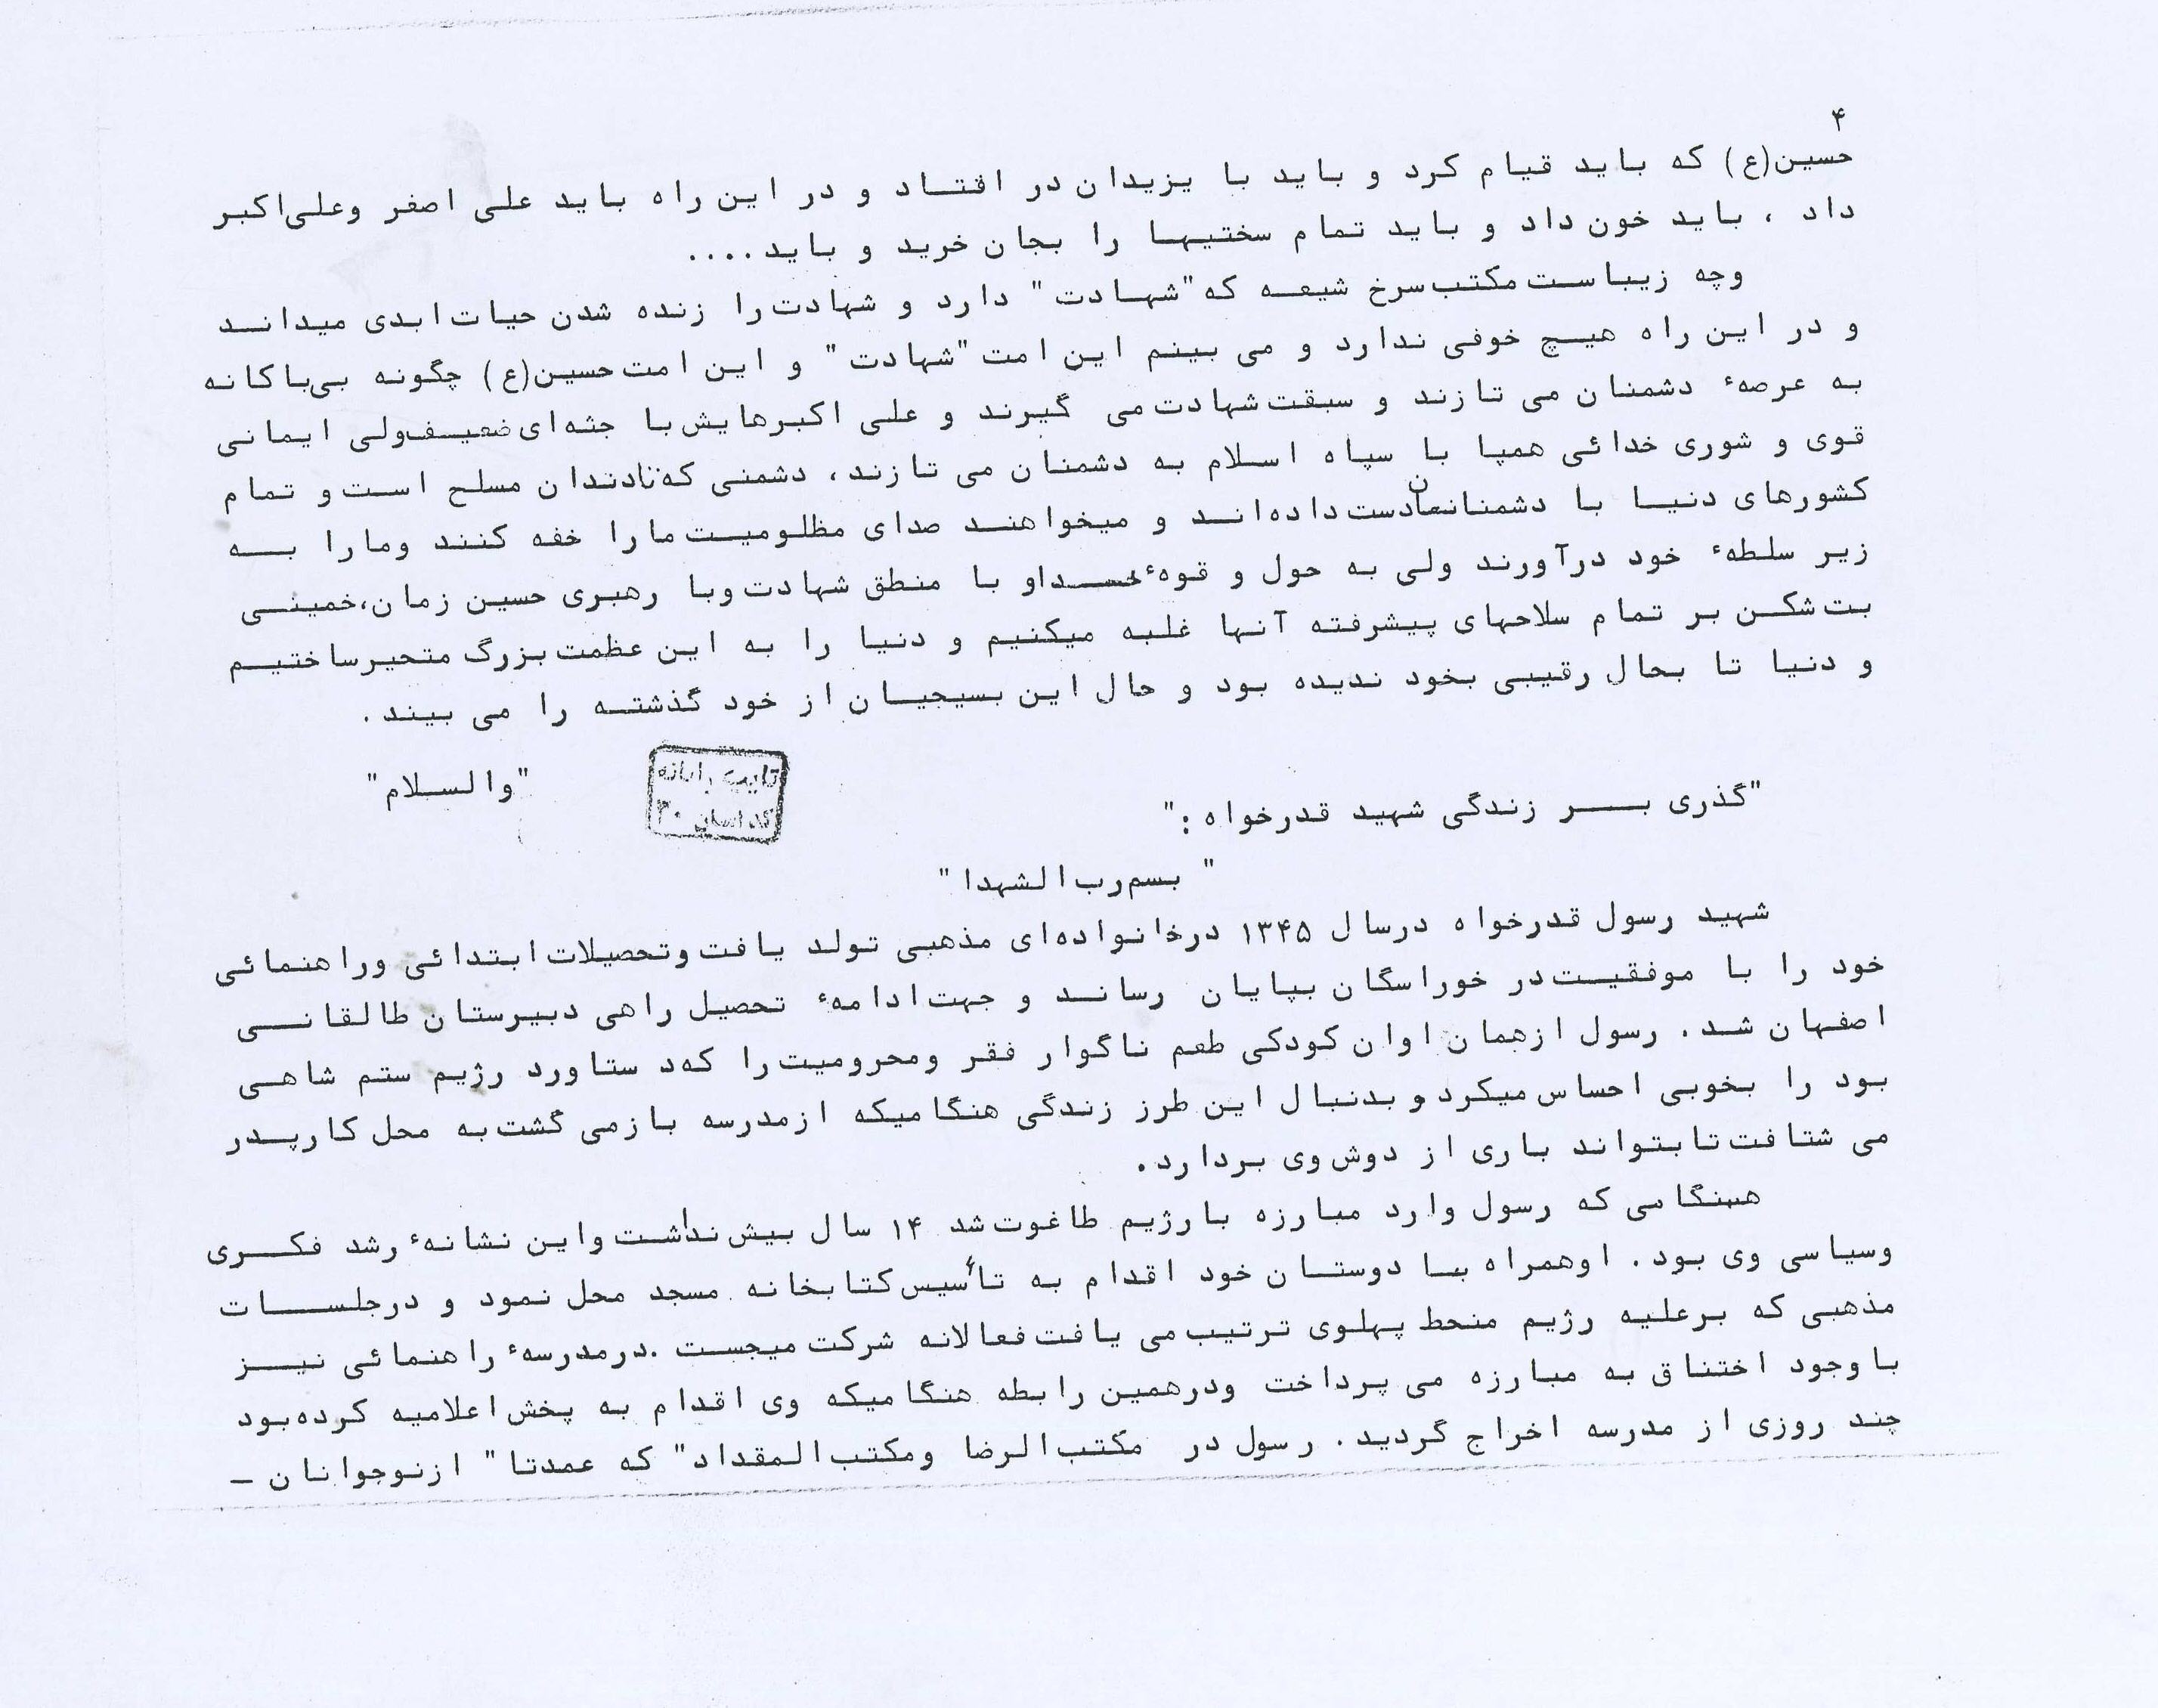 ۴
حسین(ع) که باید قیام کرد و باید با یزیدان در افتاد و در این راه باید علی اصغر وعلی‌اکبر
داد ، باید خون داد و باید تمام سختیها را بجان خرید و باید....
وچه زیباست مکتب سرخ شیعه که "شهادت" دارد و شهادت را زنده شدن حیات ابدی میداند
و در این راه هیچ خوفی ندارد و می بینم این امت "شهادت" و این امت حسین(ع) چگونه بی‌باکانه
به عرصهٔ دشمنان می تازند و سبقت شهادت می گیرند و علی اکبرهایش با جثه‌ای ضعیف ولی ایمانی
قوی و شوری خدائی همپا با سپاه اسلام به دشمنان می تازند ، دشمنی که تادندان مسلح است و تمام
کشورهای دنیا با دشمنانمان دست داده‌اند و میخواهند صدای مظلومیت ما را خفه کنند وما را به
زیر سلطهٔ خود درآورند ولی به حول و قوهٔ خداو با منطق شهادت وبا رهبری حسین زمان،خمینی
بت شکن بر تمام سلاحهای پیشرفته آنها غلبه میکنیم و دنیا را به این عظمت بزرگ متحیرساختیم
و دنیا تا بحال رقیبی بخود ندیده بود و حال این بسیجیان از خود گذشته را می بیند .
"والسلام"
تایپ رایانه
کد اسان ۳۰
"گذری بر زندگی شهید قدرخواه :"
" بسم رب الشهدا "
شهید رسول قدرخواه درسال ۱۳۴۵ درخانواده‌ای مذهبی تولد یافت وتحصیلات ابتدائی وراهنمائی
خود را با موفقیت در خوراسگان بپایان رساند و جهت ادامهٔ تحصیل راهی دبیرستان طالقانی
اصفهان شد . رسول ازهمان اوان کودکی طعم ناگوار فقر ومحرومیت را که‌دستاورد رژیم ستم شاهی
بود را بخوبی احساس میکرد و بدنبال این طرز زندگی هنگامیکه ازمدرسه بازمی گشت به محل کارپدر
می شتافت تابتواند باری از دوش وی بردارد.
هنگامی که رسول وارد مبارزه بارژیم طاغوت شد ۱۴ سال بیش نداشت واین نشانهٔ رشد فکری
وسیاسی وی بود . اوهمراه با دوستان خود اقدام به تأسیس کتابخانه مسجد محل نمود و درجلسات
مذهبی که برعلیه رژیم منحط پهلوی ترتیب می یافت فعالانه شرکت میجست .درمدرسهٔ راهنمائی نیز
باوجود اختناق به مبارزه می پرداخت ودرهمین رابطه هنگامیکه وی اقدام به پخش اعلامیه کرده‌بود
چند روزی از مدرسه اخراج گردید . رسول در مکتب الرضا ومکتب المقداد" که عمدتا" ازنوجوانان –